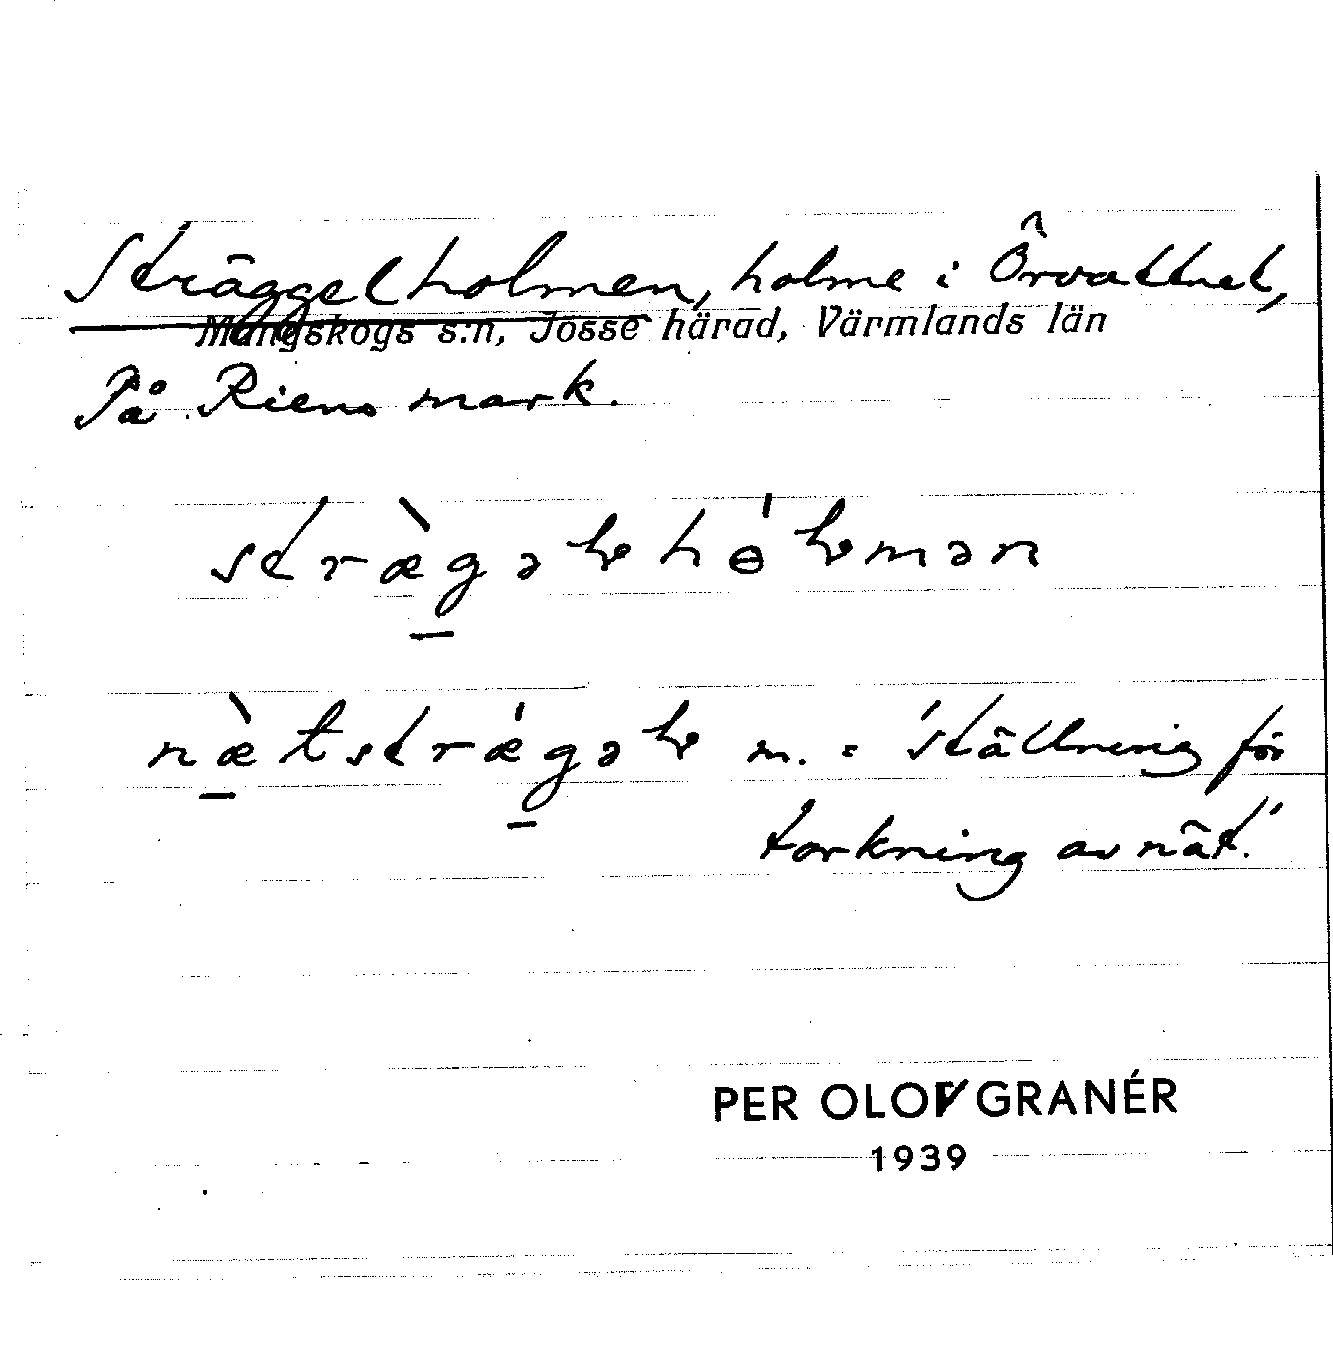 Sträggelholmen, holme i Örvattnet,
Mangskogs s:n, Jösse härad, Värmlands län
På Riens mark.
stræ̀gəɫhɵ́ɫmən
næ̀tstrǽgəɫ m. = 'ställning för
torkning av nät.'
PER OLOV GRANÉR
1939